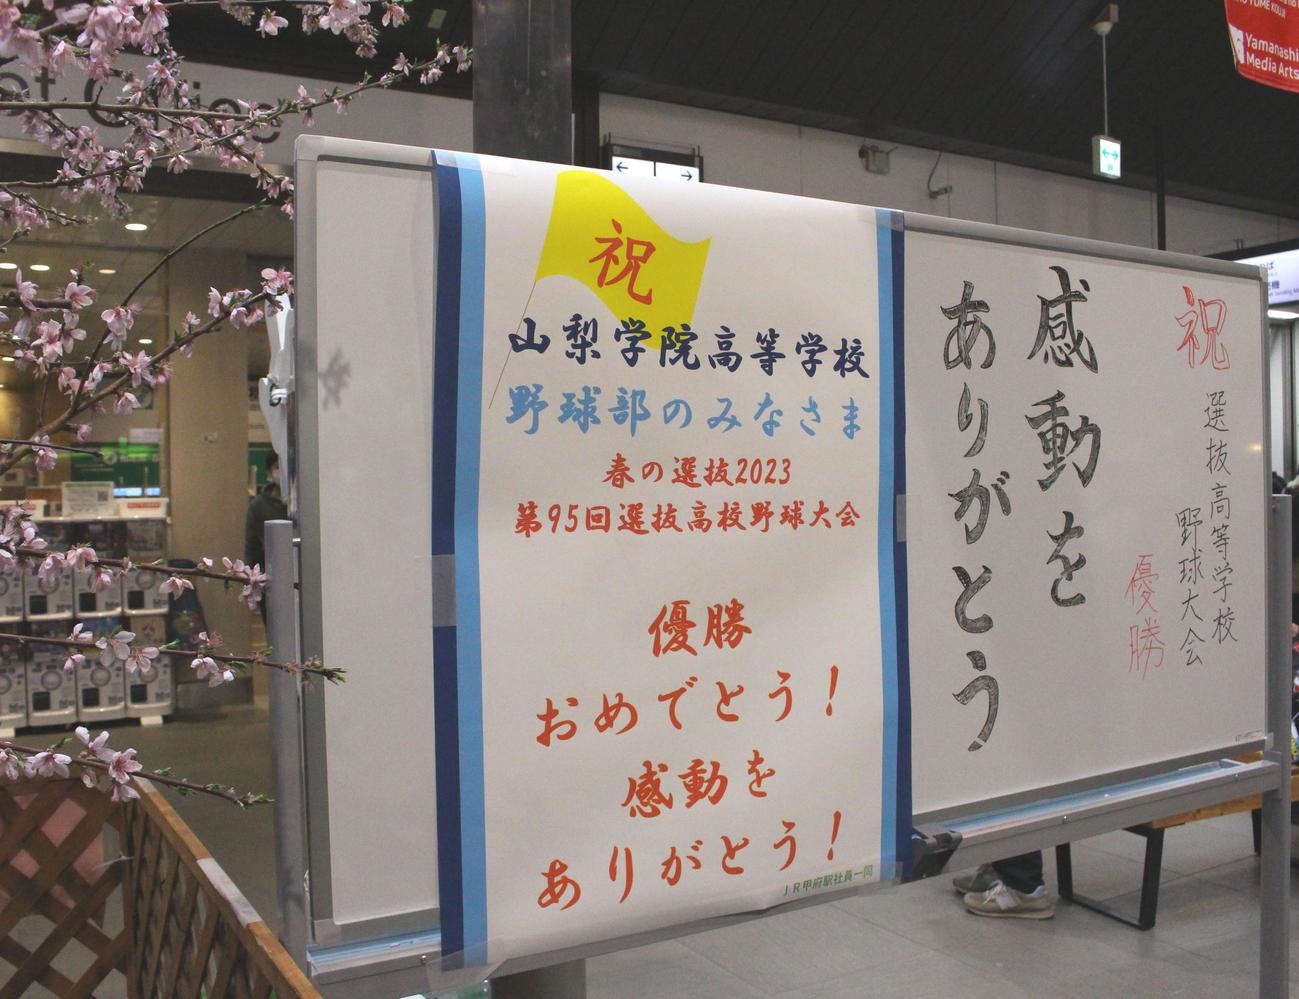 祝
山梨学院高等学校
野球部のみなさま
春の選抜2023
第95回選抜高校野球大会
優勝
おめでとう！
感動を
ありがとう！
JR甲府駅社員一同
祝
選抜高等学校
野球大会
優勝
感動を
ありがとう
Yamanashi
Media Arts